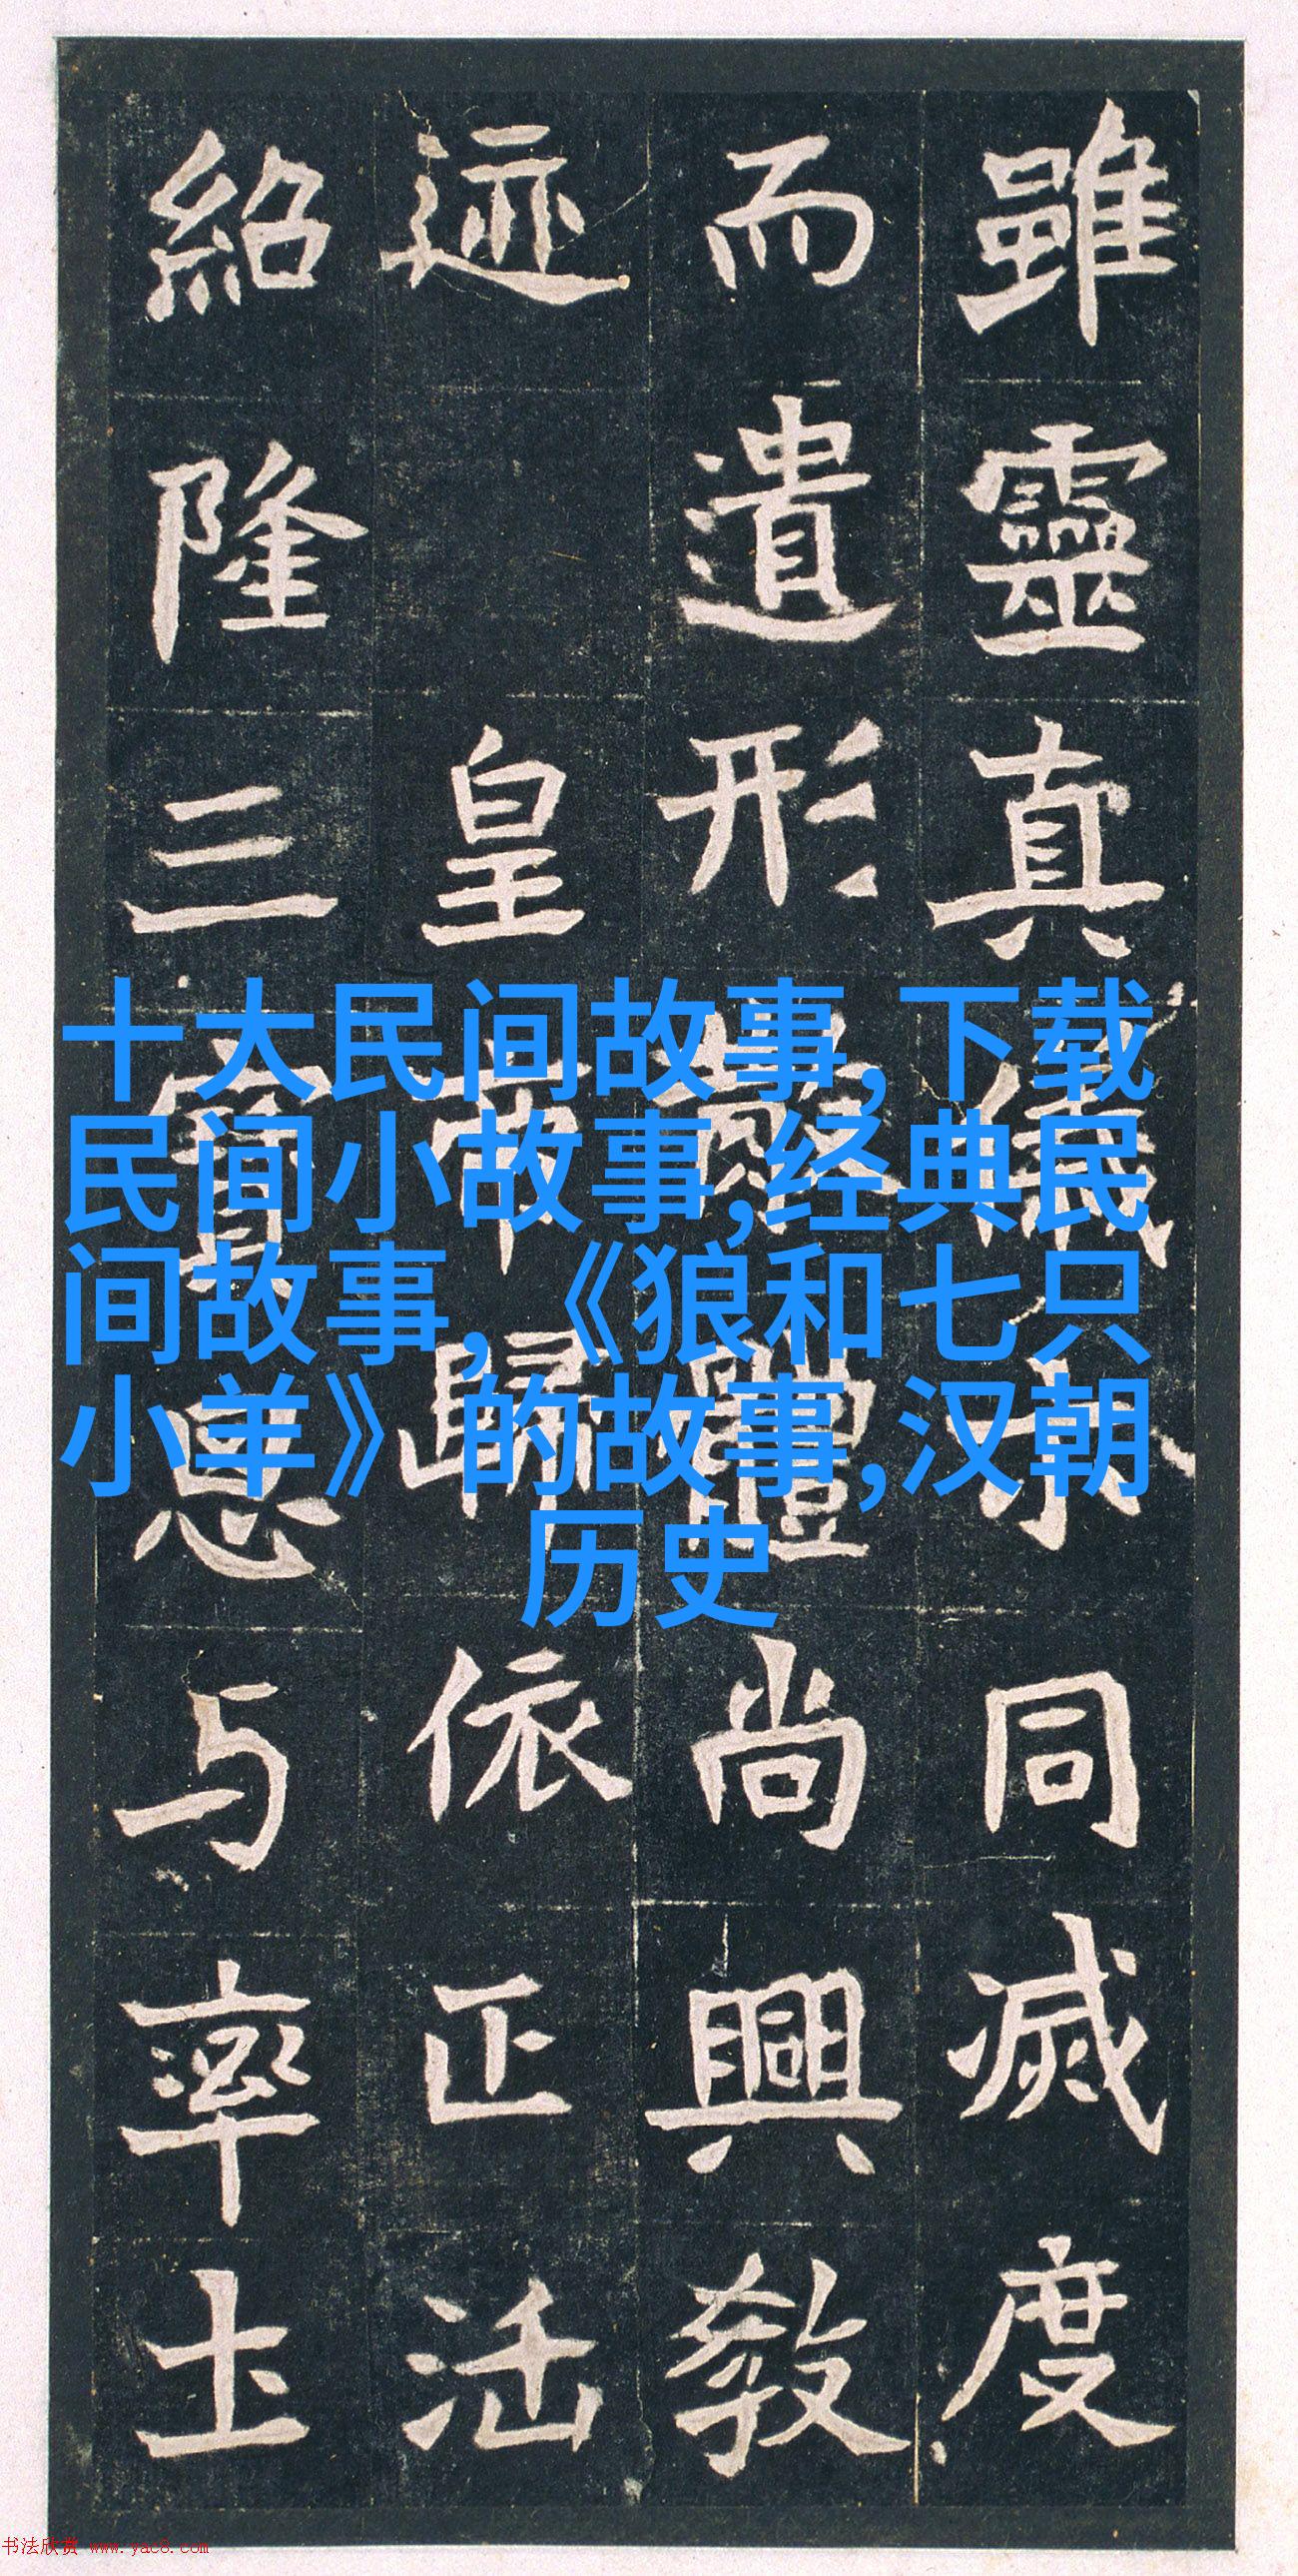 雖靈真儀不同滅度
而遺形散體尚興教
迹 皇帝歸依正法
紹隆三寶思与率土
十大民间故事,下载
民间小故事,经典民
间故事,《狼和七只
小羊》的故事,汉朝
历史
书法欣赏 www.yac8.com